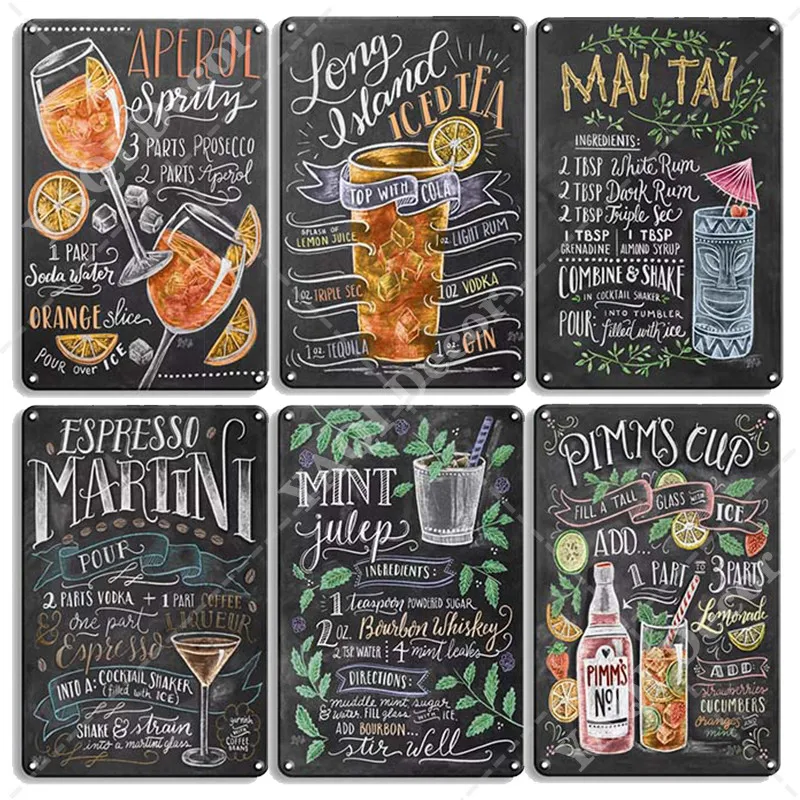 APEROL
Spritz
3 PARTS PROSECCO
2 PARTS Aperol
1 PART
Soda Water
ORANGE slice
POUR over ICE
Long
Island
ICED TEA
TOP WITH COLA
SPLASH OF
LEMON JUICE
1 OZ. LIGHT RUM
1 OZ. TRIPLE SEC
1 OZ. VODKA
1 OZ. TEQUILA
1 OZ. GIN
MAI TAI
INGREDIENTS:
2 TBSP White Rum
2 TBSP Dark Rum
2 TBSP Triple Sec
1 TBSP 1 TBSP
GRENADINE ALMOND SYRUP
COMBINE & SHAKE
IN COCKTAIL SHAKER
POUR: INTO TUMBLER
filled with ice
ESPRESSO
MARTINI
POUR
2 PARTS VODKA + 1 PART COFFEE
LIQUEUR
& one part
Espresso
INTO A: COCKTAIL SHAKER
(filled with ICE)
SHAKE & strain
into a martini glass
garnish
WITH
COFFEE
BEANS
MINT
julep
INGREDIENTS:
1 teaspoon POWDERED SUGAR
2 OZ. Bourbon Whiskey
2 TSP WATER 4 mint leaves
DIRECTIONS:
muddle mint, sugar
& water. FILL glass WITH ICE,
ADD BOURBON...
stir well
PIMM'S CUP
FILL A TALL GLASS WITH ICE
ADD...
1 PART TO 3 PARTS
Lemonade
PIMM'S
No 1
ADD
strawberries
CUCUMBERS
oranges and
mint